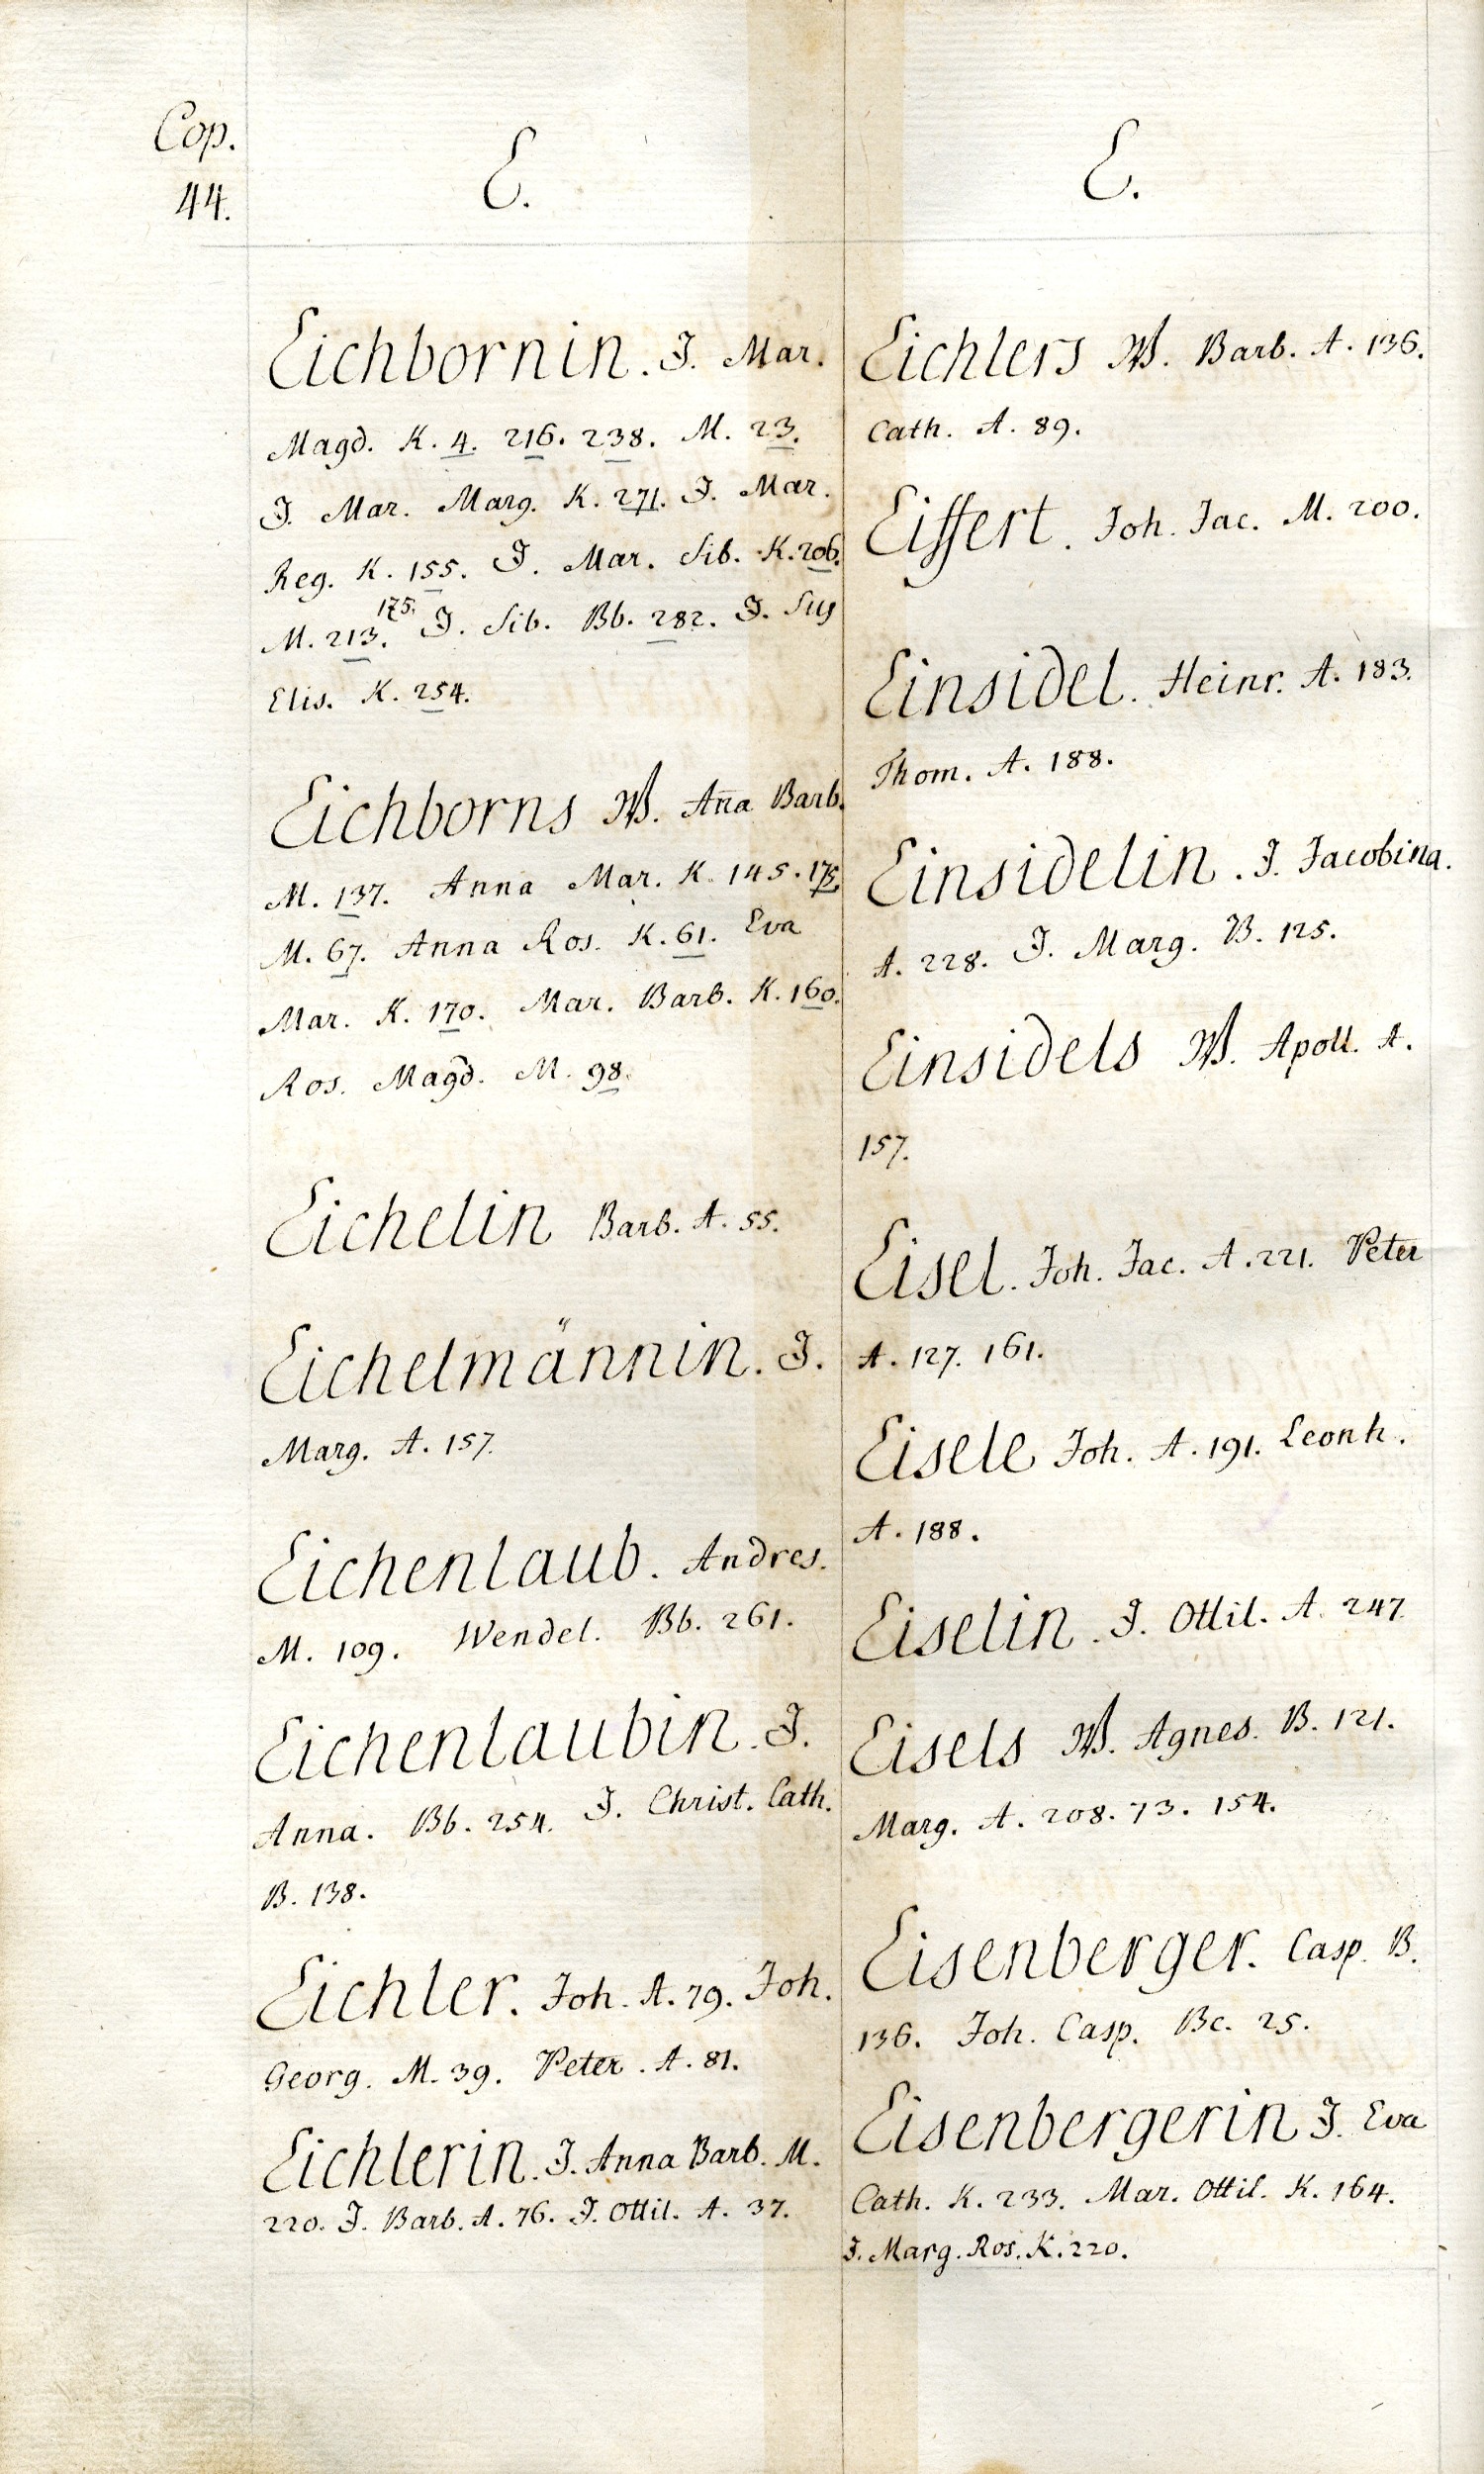 Cop.
44.
E.
Eichbornin. J. Mar.
Magd. K. 4. 216. 238. M. 23.
J. Mar. Marg. K. 271. J. Mar.
Reg. K. 155. J. Mar. Sib. K. 206.
175.
M. 213. J. Sib. Bb. 282. J. Sus
Elis. K. 254.
Eichborns W. Aña Barb.
M. 137. Anna Mar. K. 145. 175.
M. 67. Anna Ros. K. 61. Eva
Mar. K. 170. Mar. Barb. K. 160.
Ros. Magd. M. 98.
Eichelin Barb. A. 55.
Eichelmännin. J.
Marg. A. 157.
Eichenlaub. Andres.
M. 109. Wendel. Bb. 261.
Eichenlaubin. J.
Anna. Bb. 254. J. Christ. Cath.
B. 138.
Eichler. Joh. A. 79. Joh.
Georg. M. 39. Peter. A. 81.
Eichlerin. J. Anna Barb. M.
220. J. Barb. A. 76. J. Ottil. A. 37.
E.
Eichlers W. Barb. A. 136.
Cath. A. 89.
Eiffert. Joh. Jac. M. 200.
Einsidel. Heinr. A. 183.
Thom. A. 188.
Einsidelin. J. Jacobina.
A. 228. J. Marg. B. 125.
Einsidels W. Apoll. A.
157.
Eisel. Joh. Jac. A. 221. Peter
A. 127. 161.
Eisele Joh. A. 191. Leonh.
A. 188.
Eiselin. J. Ottil. A. 247
Eisels W. Agnes. B. 121.
Marg. A. 208. 73. 154.
Eisenberger. Casp. B.
136. Joh. Casp. Bc. 25.
Eisenbergerin J. Eva
Cath. K. 233. Mar. Ottil. K. 164.
J. Marg. Ros. K. 220.